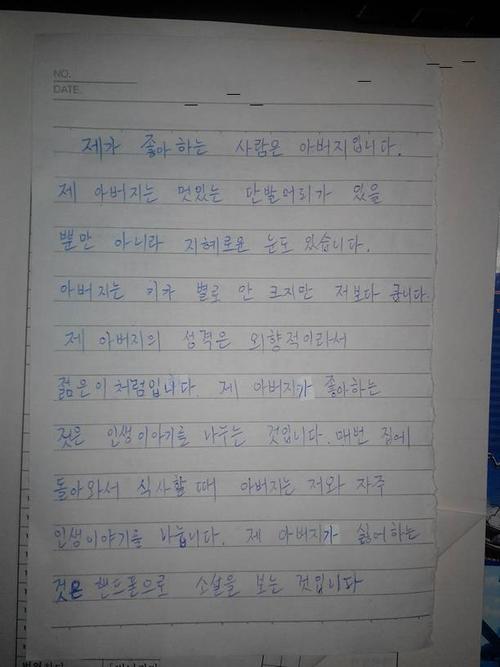 NO.
DATE.
제가 좋아하는 사람은 아버지입니다.
제 아버지는 멋있는 단발머리가 있을
뿐만 아니라 지혜로운 눈도 있습니다.
아버지는 키카 별로 안 크지만 저보다 큽니다.
제 아버지의 성격은 외향적이라서
젊은이처럼입니다. 제 아버지가 좋아하는
것은 인생이야기를 나누는 것입니다. 매번 집에
돌아와서 식사할 때 아버지는 저와 자주
인생이야기를 나눕니다. 제 아버지가 싫어하는
것은 핸드폰으로 소설을 보는 것입니다